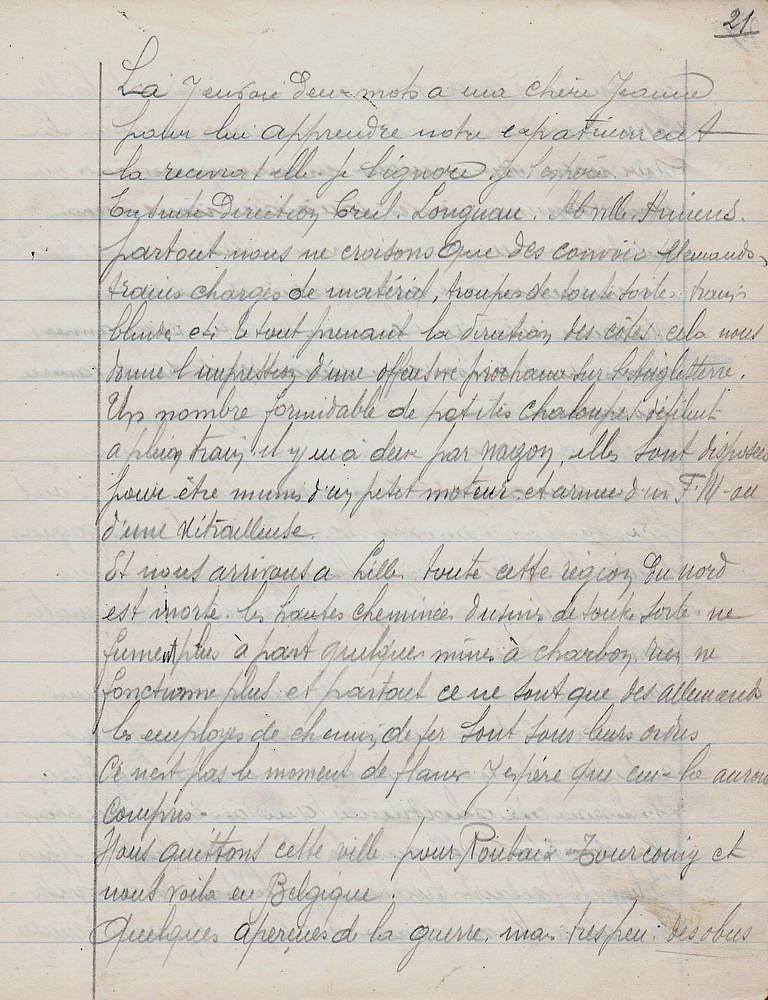 21
La j'envoie deux mots a ma chère Jeanne
pour lui apprendre notre
la recevra t elle je l'ignore, je l'espère
Ensuite Direction Creil. Longuau. Abville. Amiens.
partout nous ne croisons que des convois Allemands,
trains chargés de matériel, troupes de toute sortes. trains
blindés etc le tout prenant la direction des côtes. cela nous
donne l'impression d'une offensive prochaine sur l'Angleterre.
Un nombre formidable de petites chaloupes défilent
a plein train il y en a deux par wagon, elles sont disposées
pour être munis d'un petit moteur. et armée d'un F.M. ou
d'une Mitrailleuse.
Et nous arrivons a Lille. toute cette région du nord
est morte. les hautes cheminées d'usines de toute sorte. ne
fument plus à part quelques mines à charbon, rien ne
fonctionne plus et partout ce ne sont que des allemands
les employés de chemin de fer sont sous leurs ordres
Ce n'est pas le moment de flaner J'espère que ceux-la auront
compris.
Nous quittons cette ville pour Roubaix Tourcoing et
nous voila en Belgique.
Quelques aperçues de la guerre. mais tres peu. des obus